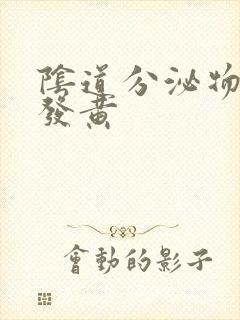 陰道分泌物
發黃
會動的影子